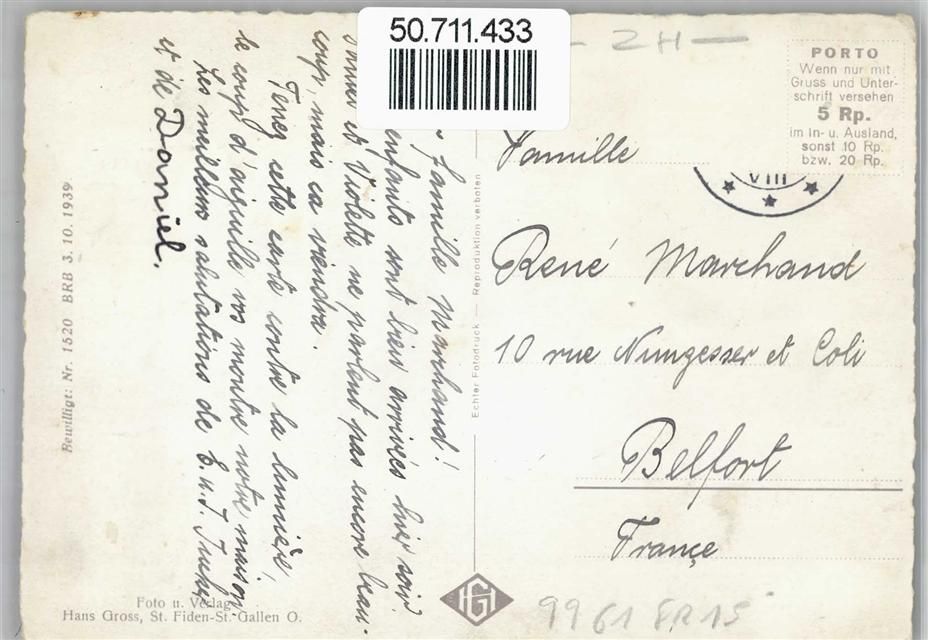 50.711.433
ZH
PORTO
Wenn nur mit
Gruss und Unter-
schrift versehen
5 Rp.
im In- u. Ausland,
sonst 10 Rp.
bzw. 20 Rp.
VIII
famille Marchand!
enfants sont bien arrivés hier soir.
et Violette ne parlent pas encore beau-
coup, mais ca viendra.
Tenez cette carte contre la lumière,
le coup d'aiguille vos montre notre maison.
Les meilleurs salutations de E. u. J.
et de Daniel.
Famille
René Marchand
10 rue Nungesser et Coli
Belfort
France
Echter Fotodruck — Reproduktion verboten
Bewilligt: Nr. 1520 BRB 3. 10. 1939
Foto u. Verlag
Hans Gross, St. Fiden-St. Gallen O.
HG
9961